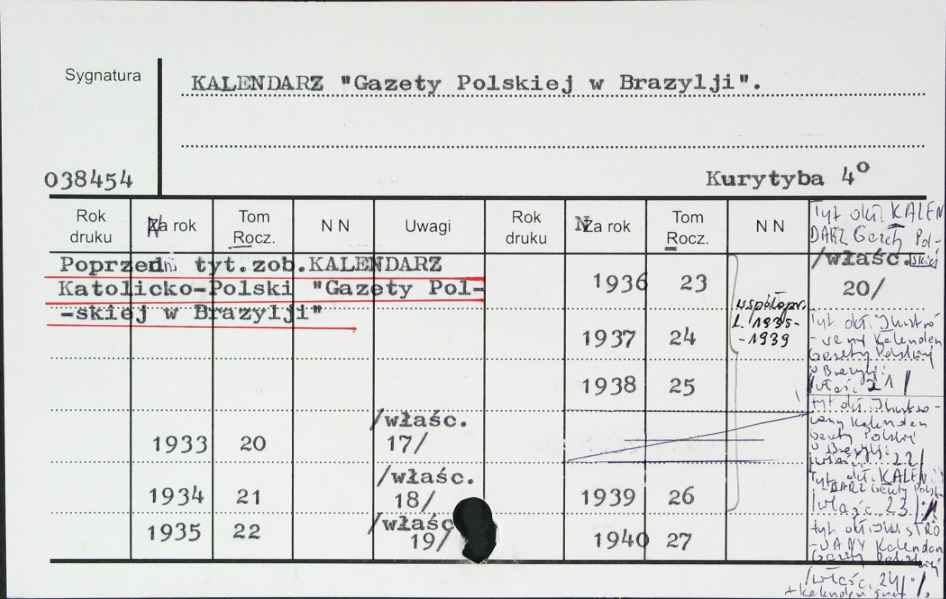 Sygnatura
KALENDARZ "Gazety Polskiej w Brazylji".
038454
Kurytyba 4º
Rok druku
Za rok
Tom Rocz.
N N
Uwagi
Rok druku
Za rok
Tom Rocz.
N N
Tyt okł. KALEN
DARZ Gazety Pol-
skiej
/właśc.
20/
Poprzedni tyt.zob.KALENDARZ
Katolicko-Polski "Gazety Pol-
-skiej w Brazylji"
1936 23
współopr.
1. 1935-
-1939
1937 24
Tyt okł. Ilustro
-wany Kalendarz
Gazety Polskiej
w Brazylji
/właśc. 21/
1938 25
1933 20 /właśc. 17/
tyt okł. Ilustro-
wany Kalendarz
Gazety Polskiej
w Brazylji
22/
1934 21 /właśc. 18/
1939 26
Tyt okł. KALEN
DARZ Gazety Polsk
/właśc. 23/
1935 22 /właśc 19/
1940 27
tyt okł. ILUSTRO
-WANY Kalendarz
Gazety Polskiej
/właśc. 24/
+ kalendarz